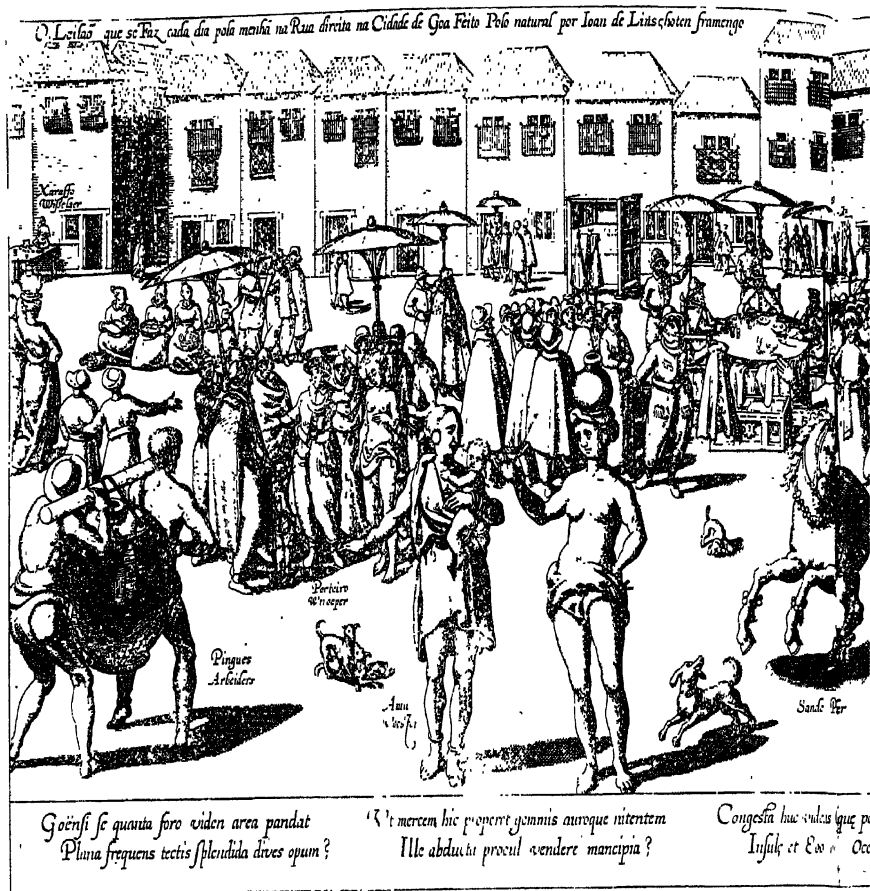 O Leilaõ que se Faz cada dia pola menhã na Rua direita na Cidade de Goa Feito Polo natural por Ioan de Linschoten framengo
Xaraffo
Wisseler
Porteiro
Wtroeper
Pingues
Arbeiders
Ama
Sande
Goënsi se quanta foro viden area pandat
Plana frequens tectis splendida dives opum?
Vt mercem hic properet gemmis auroque nitentem
Ille abducta procul vendere mancipia?
Congesta huc videis que
Insulę et Eoo